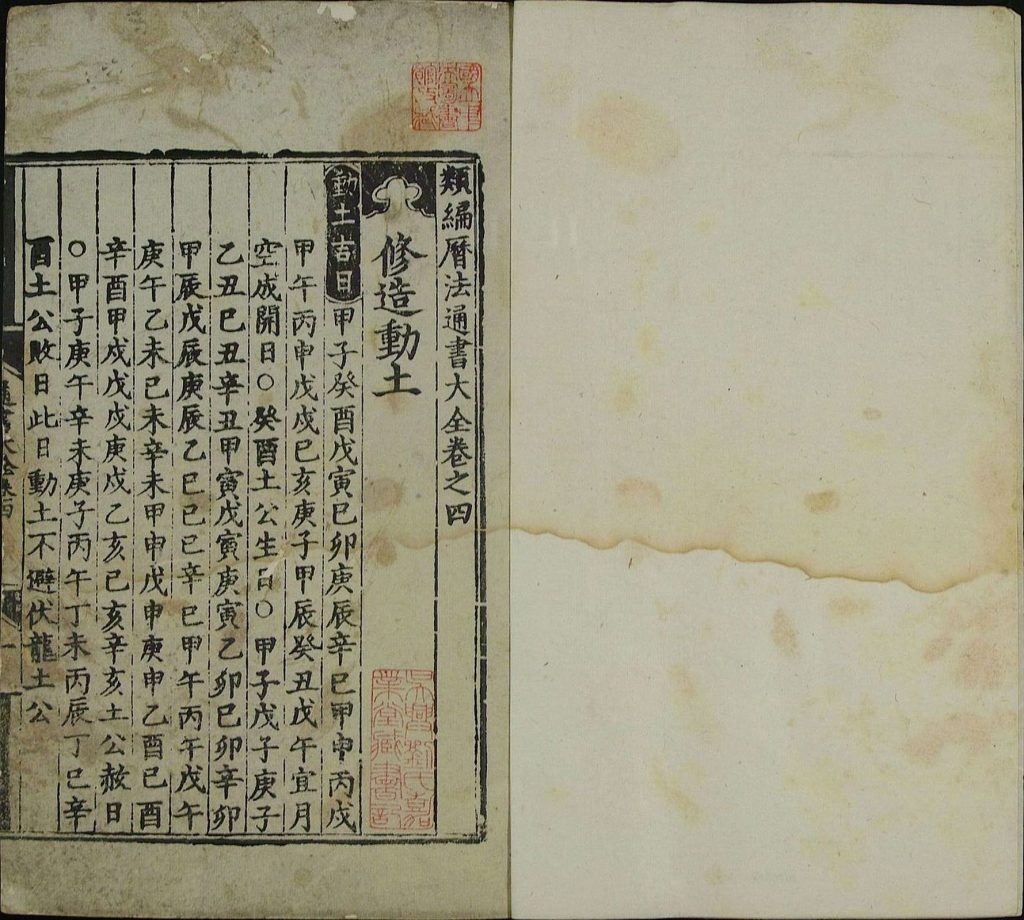 類編曆法通書大全卷之四
修造動土
動土吉日 甲子癸酉戊寅巳卯庚辰辛巳甲申丙戌
甲午丙申戊戌巳亥庚子甲辰癸丑戊午宜月
空成開日○癸酉土公生日○甲子戊子庚子
乙丑巳丑辛丑甲寅戊寅庚寅乙卯巳卯辛卯
甲辰戊辰庚辰乙巳巳巳辛巳甲午丙午戊午
庚午乙未巳未辛未甲申戊申庚申乙酉巳酉
辛酉甲戌戊戌庚戌乙亥巳亥辛亥土公赦日
○甲子庚午辛未庚子丙午丁未丙辰丁巳辛
酉土公敗日此日動土不避伏龍土公
通書大全卷四
一
國立中央圖書館收藏
吳興劉氏嘉業堂藏書記